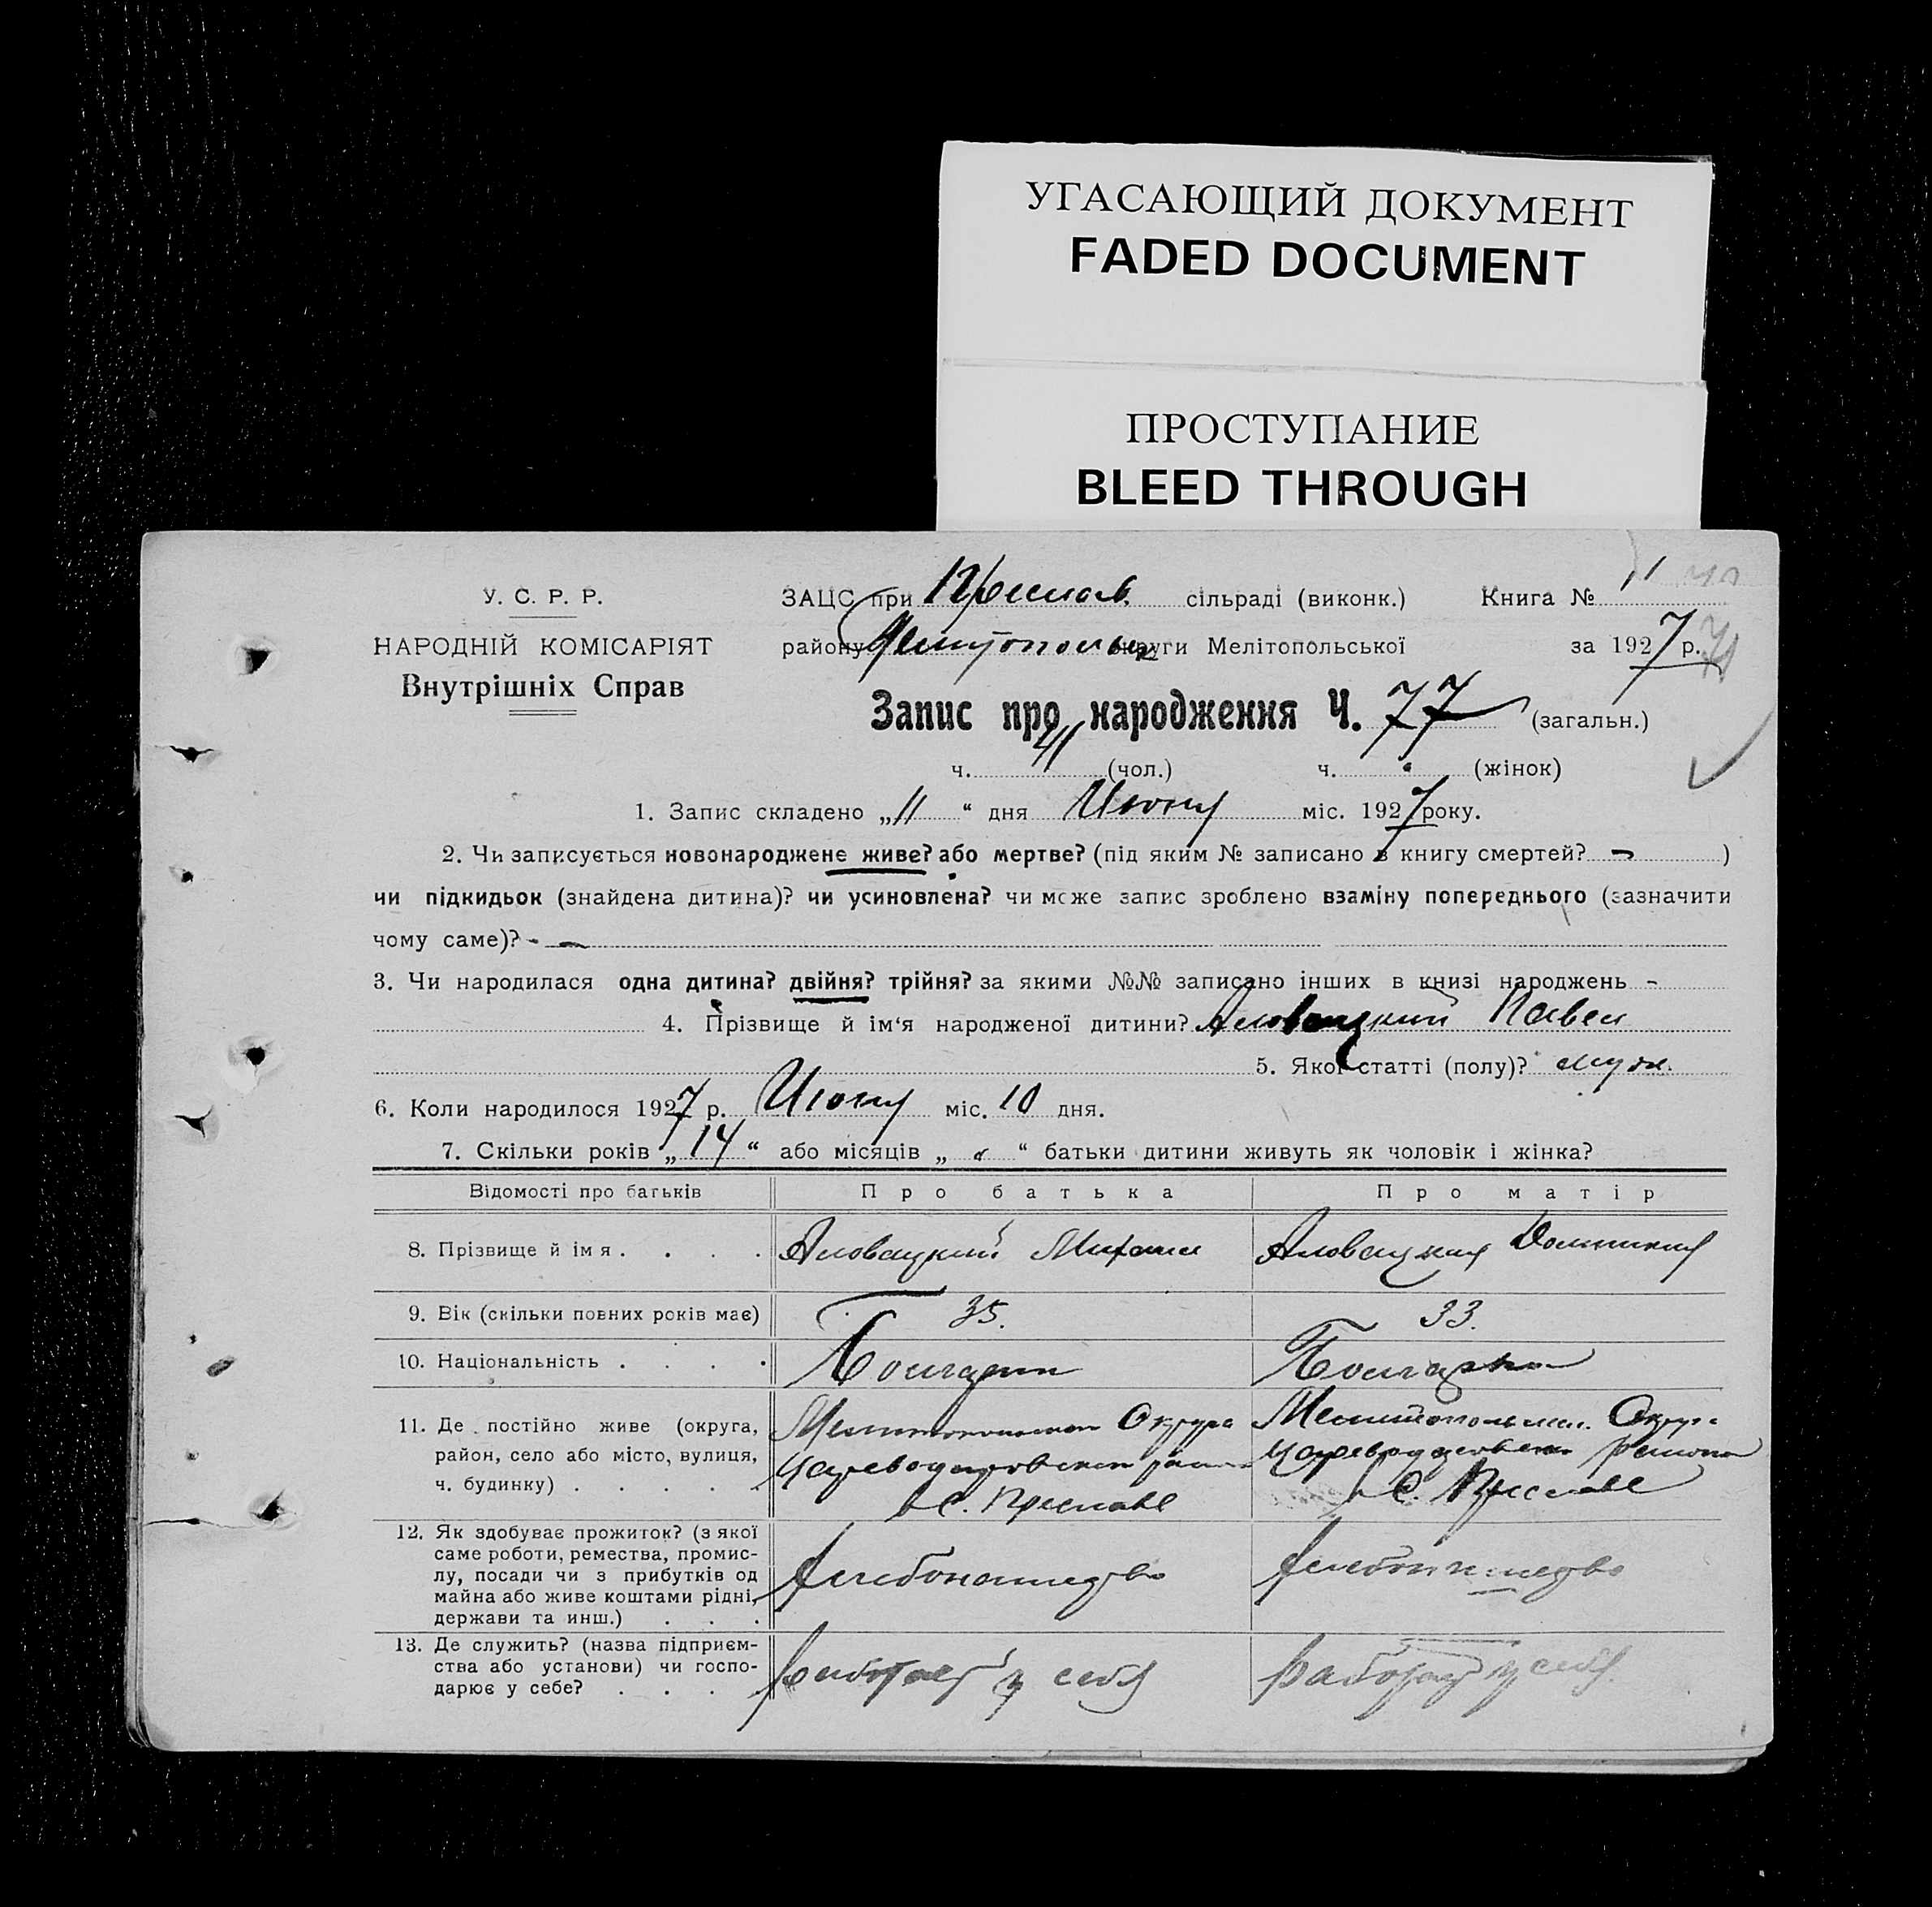 УГАСАЮЩИЙ ДОКУМЕНТ
FADED DOCUMENT
ПРОСТУПАНИЕ
BLEED THROUGH
У. С. Р. Р.
НАРОДНІЙ КОМІСАРІЯТ
Внутрішніх Справ
ЗАЦС при Преслав. сільраді (виконк.) Книга № 11
району округи Мелітопольської за 1927 р.
Запис про народження Ч. 77 (загальн.)
ч. 41 (чол.) ч. " (жінок)
1. Запис складено „11“ дня Июня міс. 1927 року.
2. Чи записується новонароджене живе? або мертве? (під яким № записано в книгу смертей? - )
чи підкидьок (знайдена дитина)? чи усиновлена? чи може запис зроблено взаміну попереднього (зазначити
чому саме)? -
3. Чи народилася одна дитина? двійня? трійня? за якими №№ записано інших в книзі народжень -
4. Прізвище й ім‘я народженої дитини? Аловацкий Павел
5. Якої статті (полу)? муж.
6. Коли народилося 1927 р. Июня міс. 10 дня.
7. Скільки років „14“ або місяців „ “ батьки дитини живуть як чоловік і жінка?
Відомості про батьків Про батька Про матір
8. Прізвище й ім я . . . . Аловацкий Михаил Аловацкая Доминикия
9. Вік (скільки повних років має) 35. 33.
10. Національність . . . . Болгарин Болгарка
11. Де постійно живе (округа,
район, село або місто, вулиця,
ч. будинку) . . . . .
Мелитопольск Округа
Цареводаровский район
с. Преславе
Мелитопольск. Округа
Цареводаровский района
с. Преславе
12. Як здобуває прожиток? (з якої
саме роботи, ремества, промис-
лу, посади чи з прибутків од
майна або живе коштами рідні,
держави та инш.) . . .
хлебопашество
хлебопашество
13. Де служить? (назва підприєм-
ства або установи) чи госпо-
дарює у себе? . . . .
работает у себя
работает у себя.